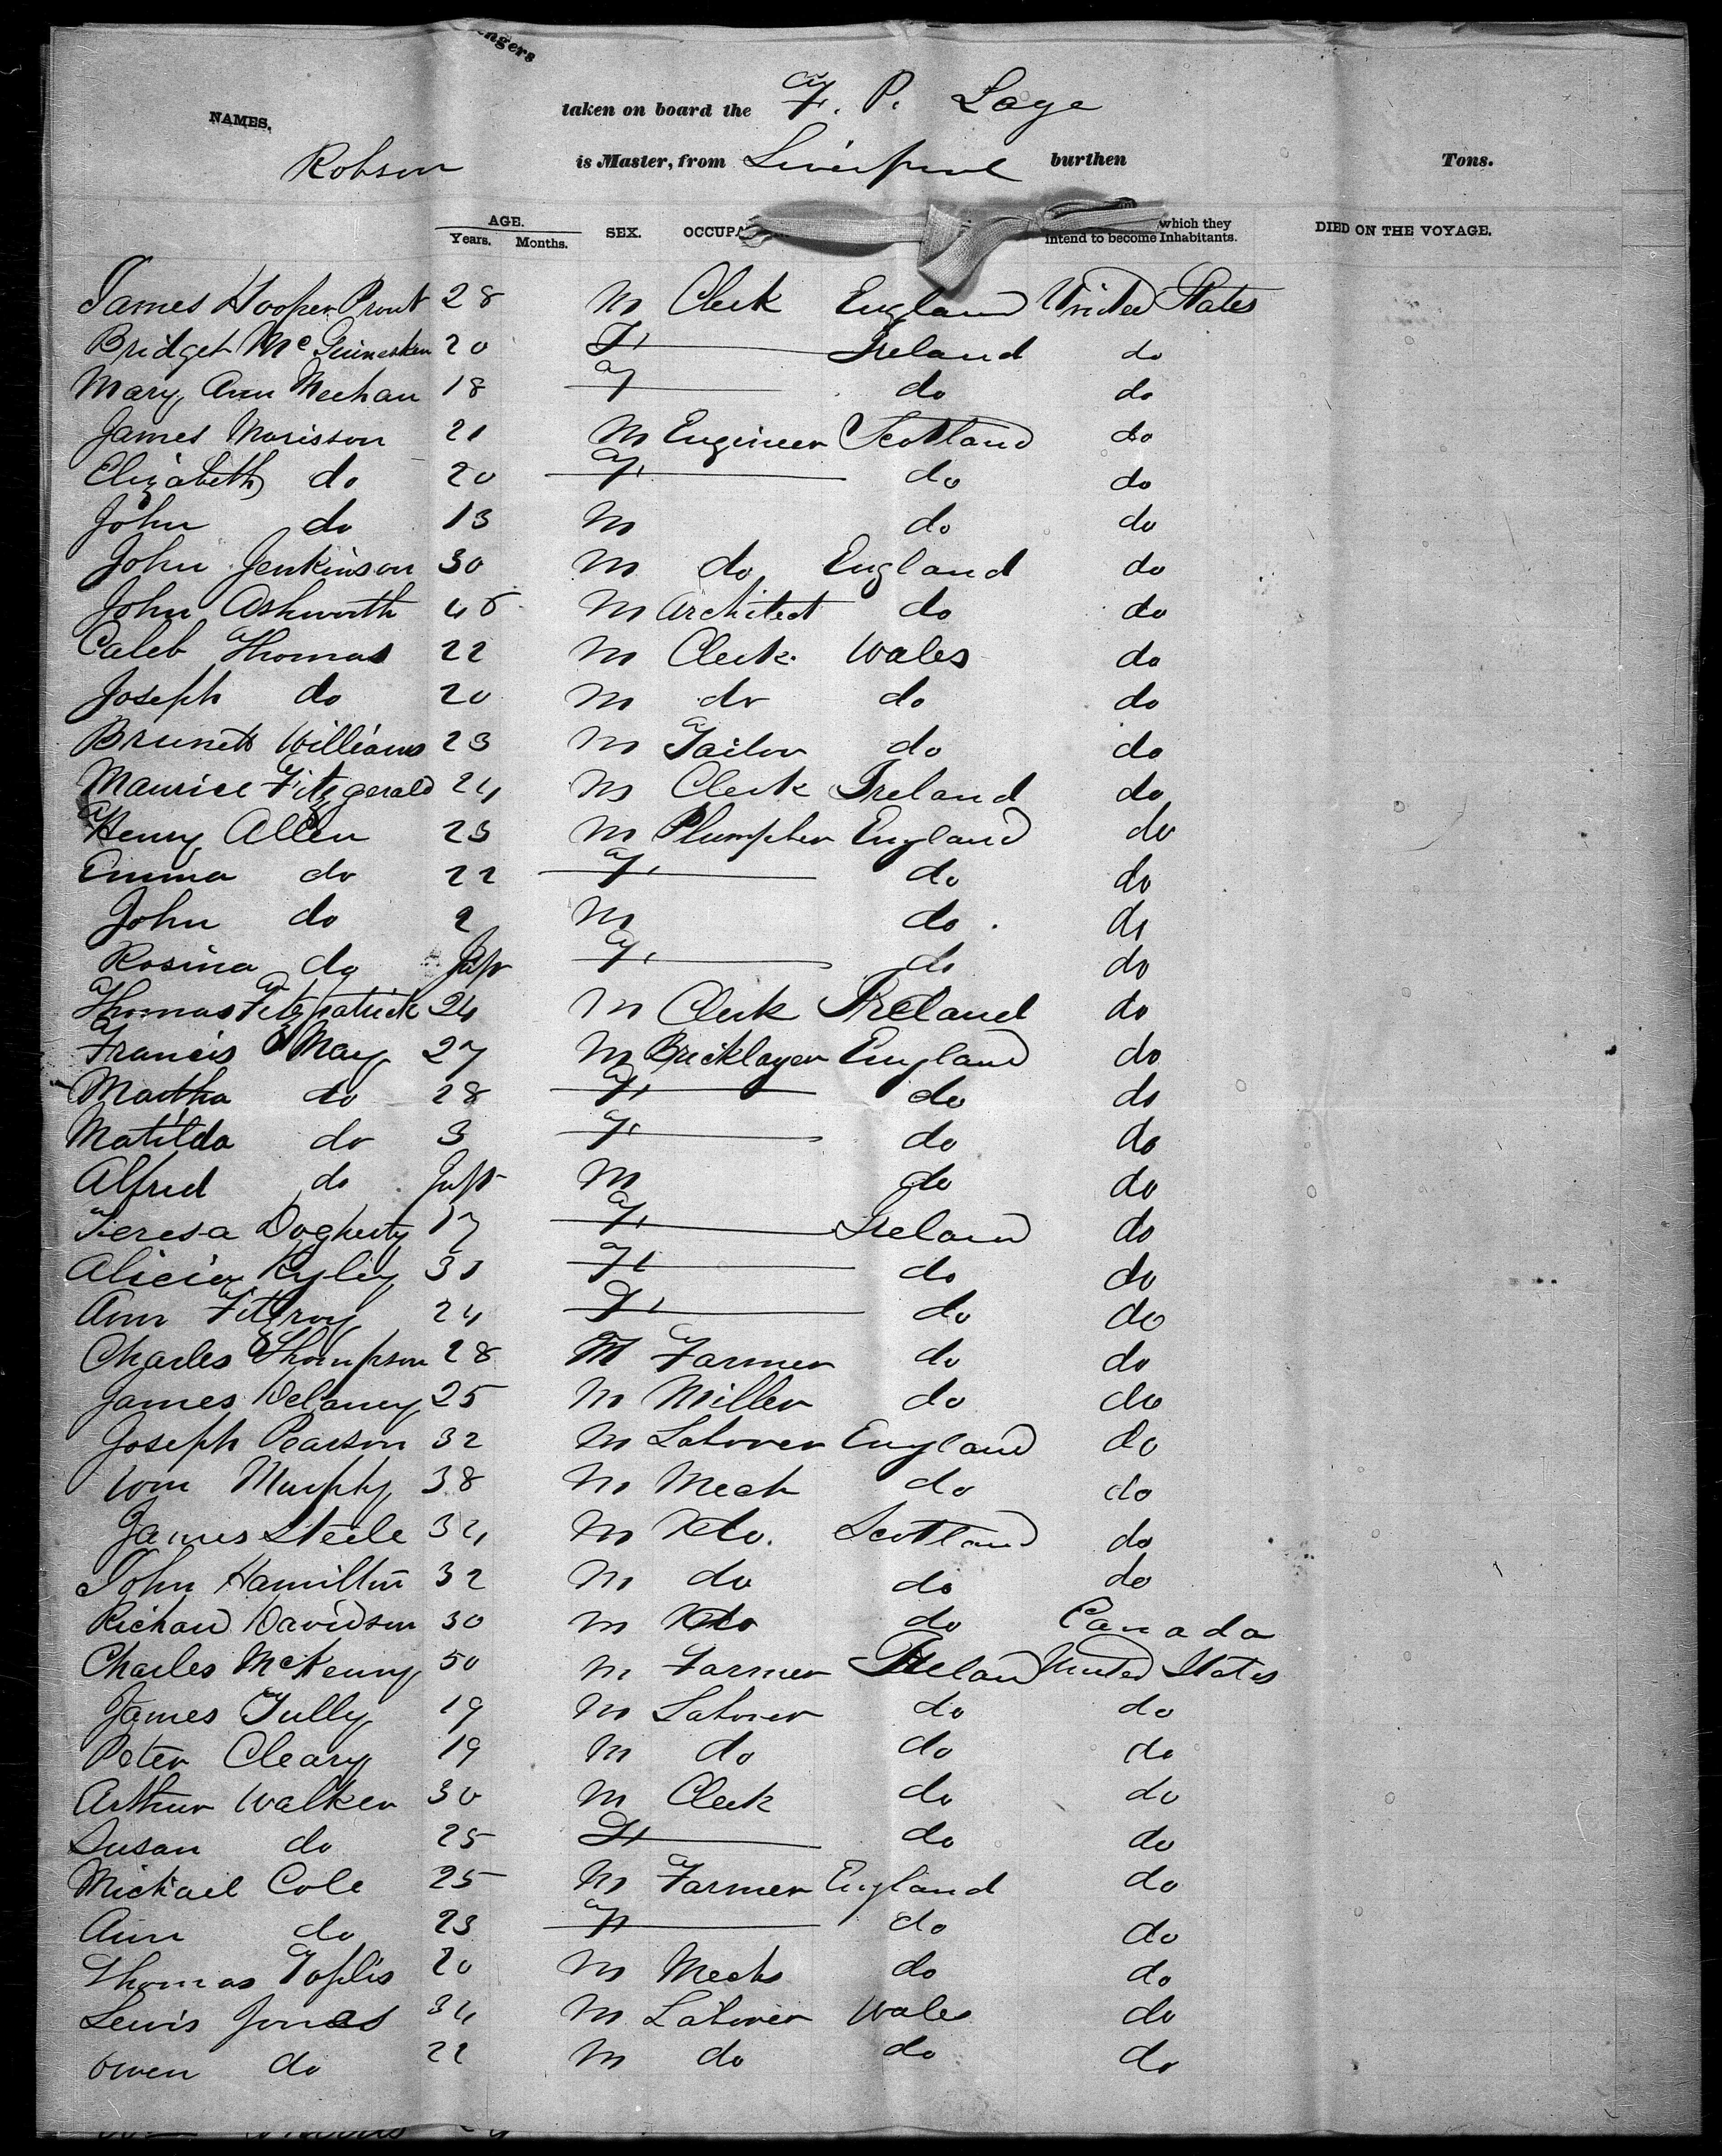 NAMES.
taken on board the F. P. Sage
Robson is Master, from Liverpool burthen Tons.
AGE. SEX. which they DIED ON THE VOYAGE.
Years. Months. intend to become Inhabitants.
James Hooper Prout 28 M Clerk England United States
Bridget 20 F Ireland do
Mary Ann Meehan 18 F do do
James Morisson 21 M Engineer Scotland do
Elizabeth do 20 F do do
John do 13 M do do
John Jenkinson 30 M do England do
John Ashworth M Architect do do
Caleb Thomas 22 M Clerk Wales do
Joseph do 20 M do do do
Brunett Williams 23 M Tailor do do
Maurice Fitzgerald 24 M Clerk Ireland do
Henry Allen 23 M Plumpber England do
Emma do 22 F do do
John do 2 M do do
Rosina do F do do
Thomas Fitzpatrick 24 M Clerk Ireland do
Francis May 27 M Bricklayer England do
Martha do 28 F do do
Matilda do 3 F do do
Alfred do M do do
Teresa Dogherty 17 F Ireland do
Alicia Ryley F do do
Ann Fitzroy 24 F do do
Charles Thompson 28 M Farmer do do
James Delaney 25 M Miller do do
Joseph Pearson 32 M Laborer England do
Wm Murphy 38 M Mech do do
James Steele 34 M do. Scotland do
John Hamilton 32 M do do do
Richard Davidson 30 M do do Canada
Charles McKenny 50 M Farmer Ireland United States
James Tully 19 M Laborer do do
Peter Cleary 19 M do do do
Arthur Walker 30 M Clerk do do
Susan do 25 F do do
Michael Cole 25 M Farmer England do
Ann do 23 F do do
Thomas Toplis 20 M Mechs do do
Lewis Jones 34 M Laborer Wales do
Owen do 22 M do do do